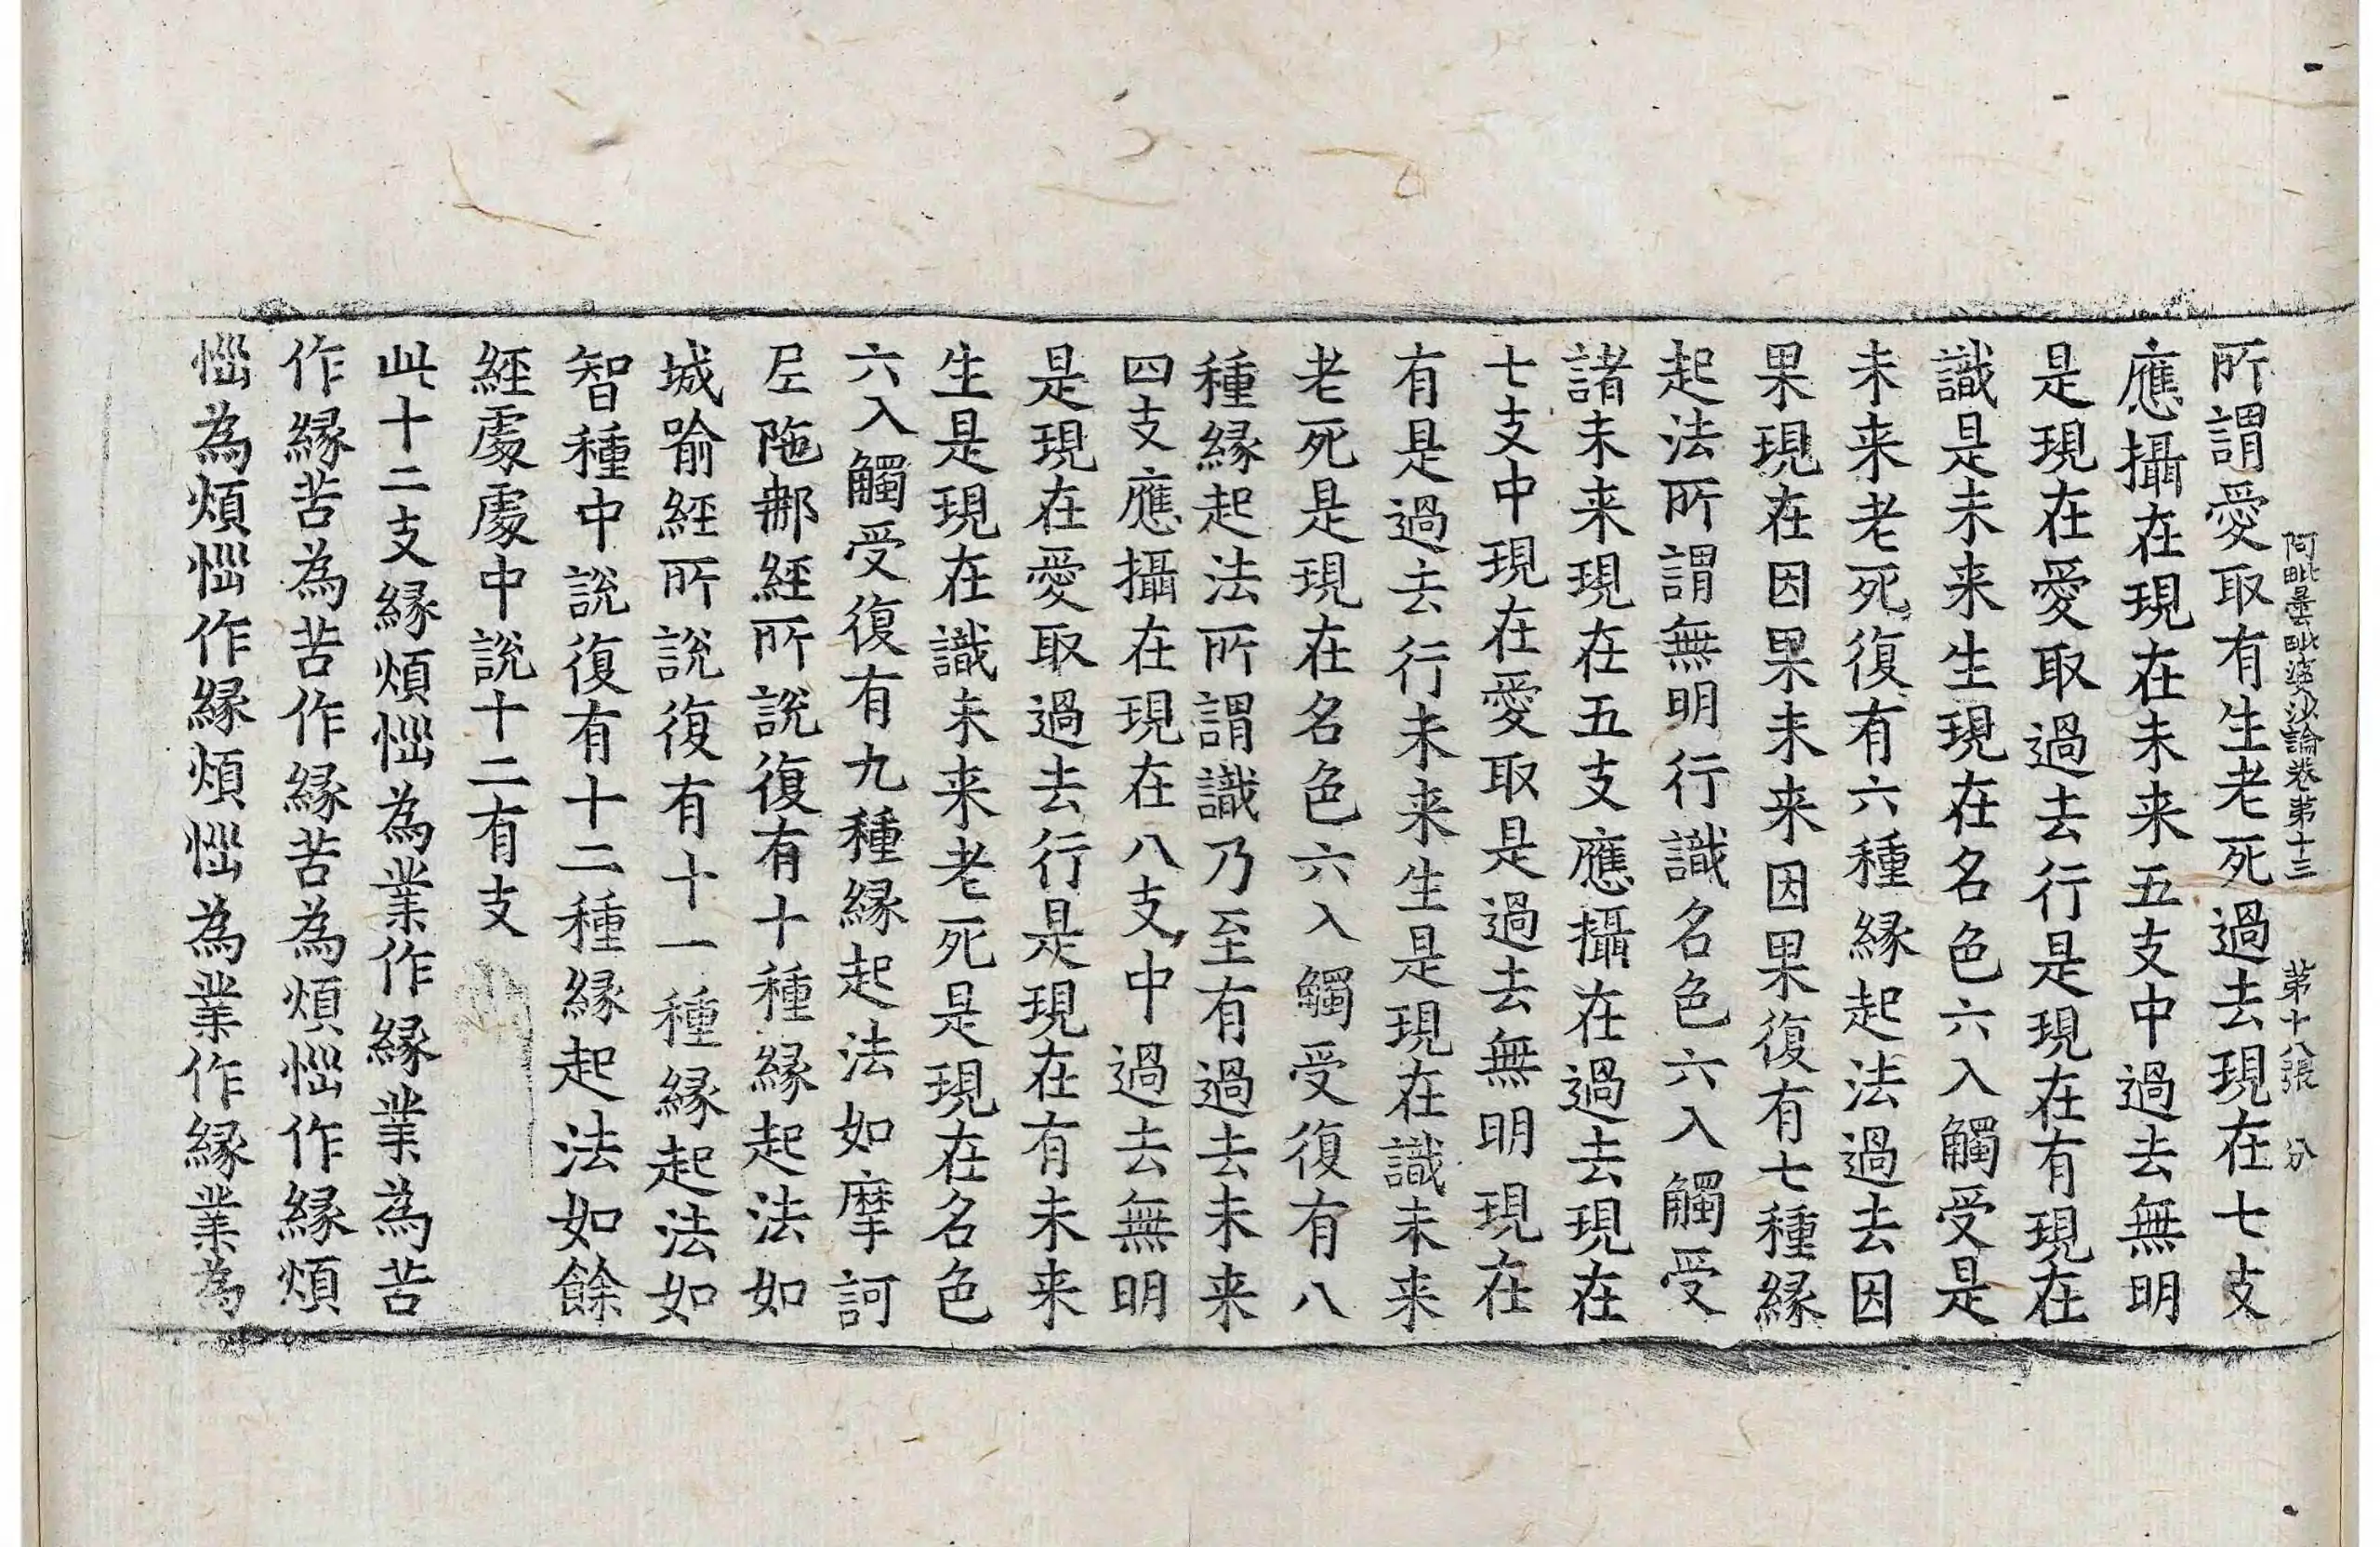 阿毗曇毗婆沙論卷第十三　第十八張　分
所謂愛取有生老死過去現在七支
應攝在現在未来五支中過去無明
是現在愛取過去行是現在有現在
識是未来生現在名色六入觸受是
未来老死復有六種縁起法過去因
果現在因果未来因果復有七種縁
起法所謂無明行識名色六入觸受
諸未来現在五支應攝在過去現在
七支中現在愛取是過去無明現在
有是過去行未来生是現在識未来
老死是現在名色六入觸受復有八
種縁起法所謂識乃至有過去未来
四支應攝在現在八支中過去無明
是現在愛取過去行是現在有未来
生是現在識未来老死是現在名色
六入觸受復有九種縁起法如摩訶
尼陁那經所說復有十種縁起法如
城喻經所說復有十一種縁起法如
智種中說復有十二種縁起法如餘
經處處中說十二有支
此十二支縁煩惱為業作縁業為苦
作縁苦為苦作縁苦為煩惱作縁煩
惱為煩惱作縁煩惱為業作縁業為